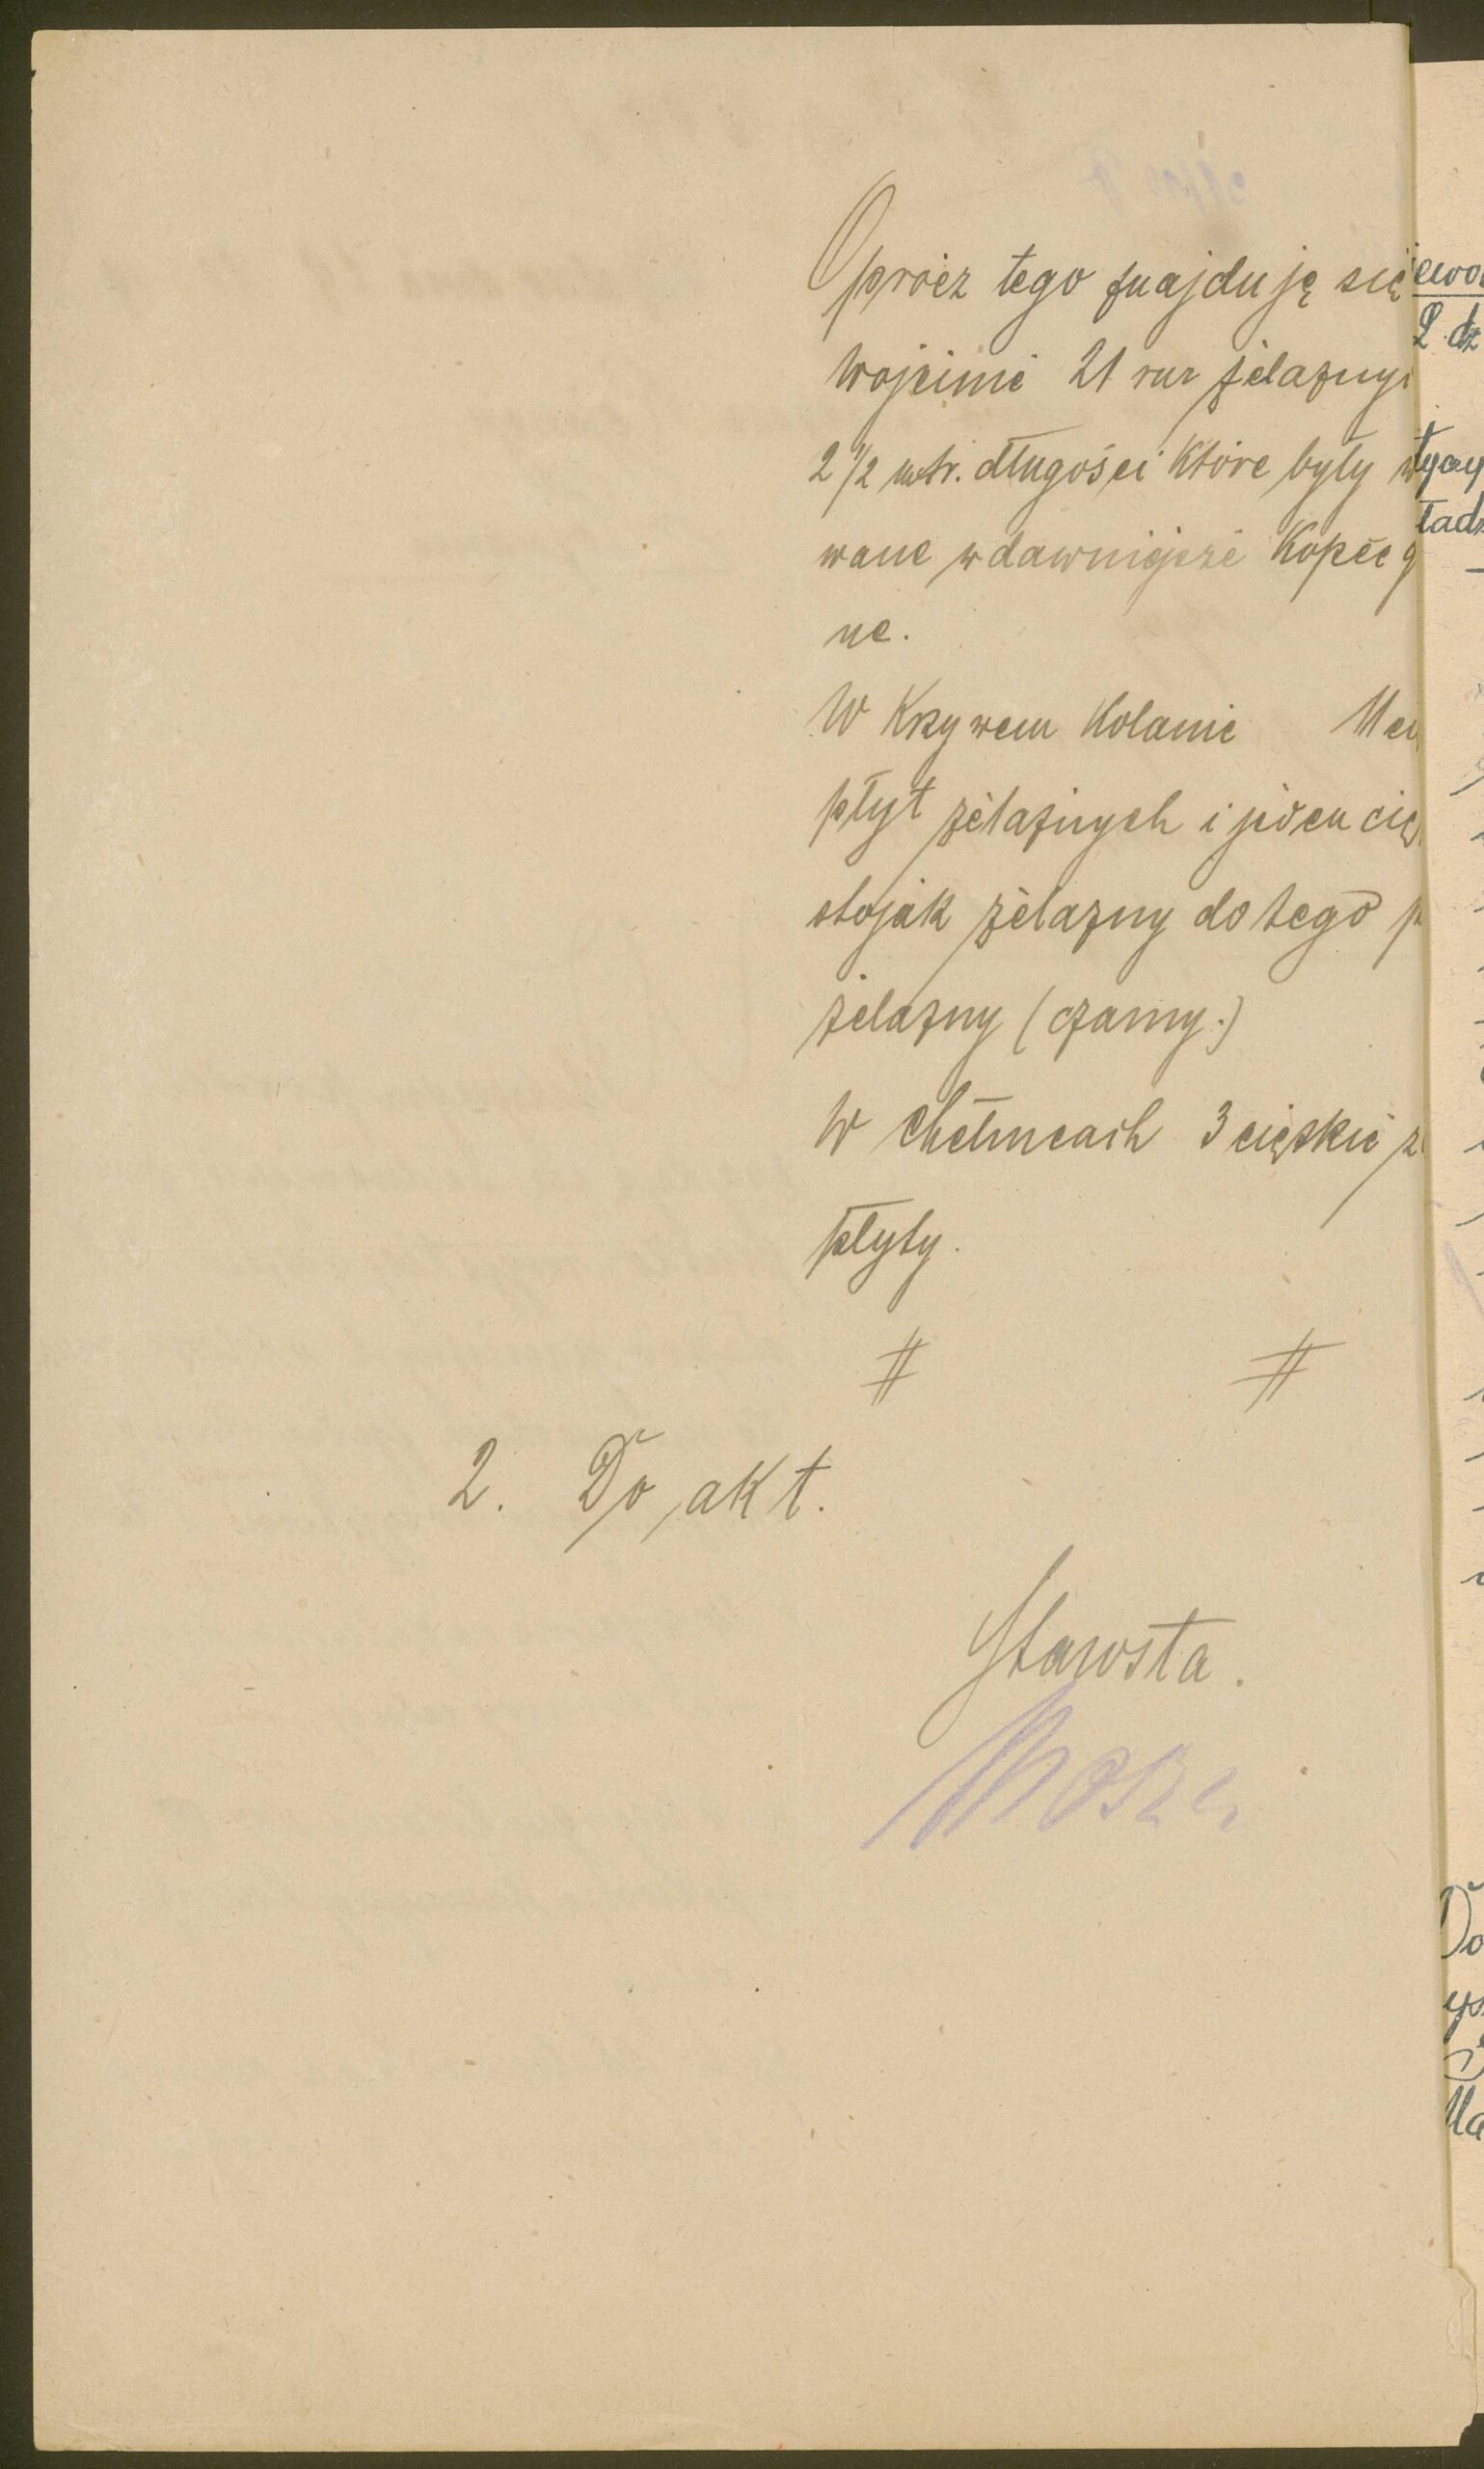 Oprócz tego znajduję się
Wojcinie 21 rur żelaznyc
2 1/2 mtr. długości które były w
wane w dawniejsze Kopce g
ne.
W Krzywem Kolanie
płyt żelaznych i jeden cię
stojak żelazny do tego p
żelazny (czarny.)
W Chełmcach 3 ciężkie ż
płyty.
# #
2. Do akt.
Starosta.